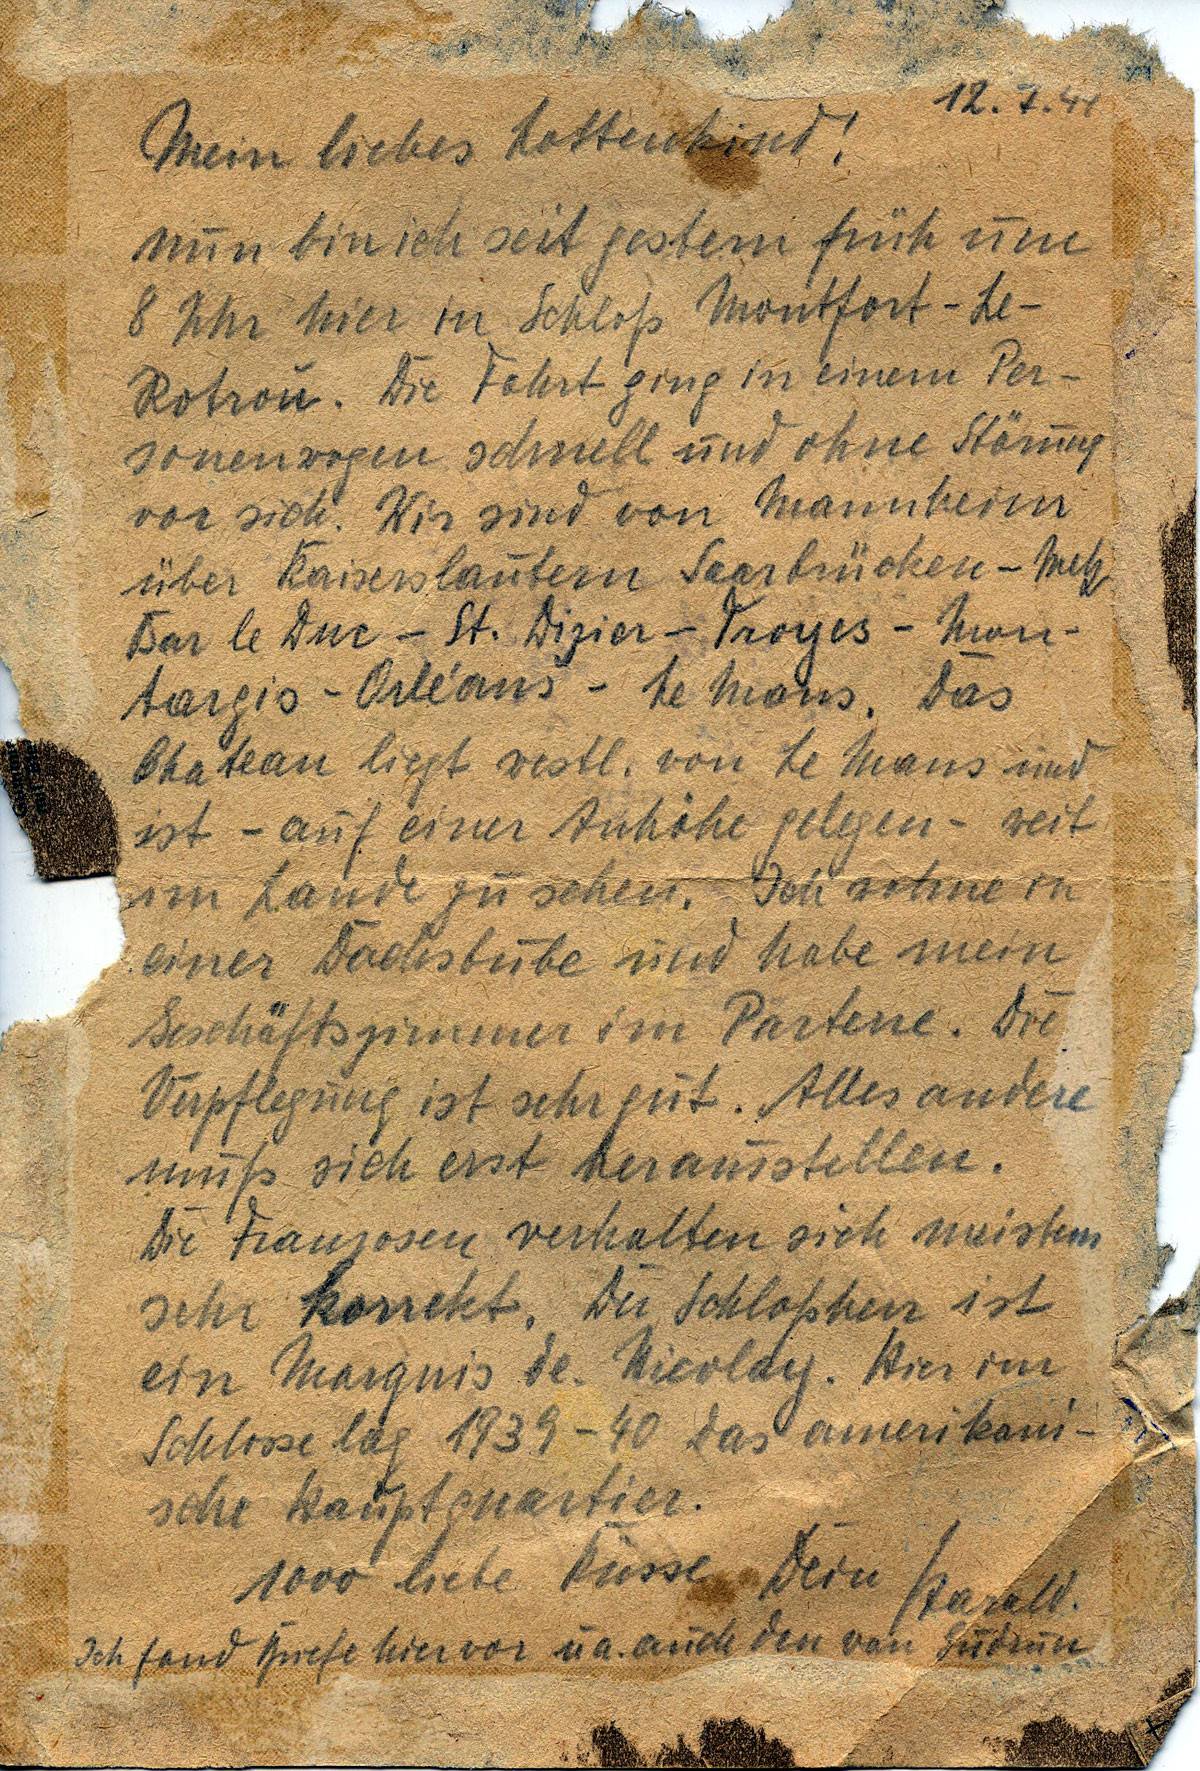 12.7.44
Mein liebes Lottenkind!
nun bin ich seit gestern früh um
8 Uhr hier in Schloß Montfort-Le-
Rotrou. Die Fahrt ging in einem Per-
sonenwagen schnell und ohne Störung
vor sich. Wir sind von Mannheim
über Kaiserslautern Saarbrücken - Metz
Bar le Duc - St. Dizier - Troyes - Mon-
targis - Orléans - Le Mans. Das
Chateau liegt westl. von Le Mans und
ist - auf einer Anhöhe gelegen - weit
im Lande zu sehen. Ich wohne in
einer Dachstube und habe mein
Geschäftszimmer im Parterre. Die
Verpflegung ist sehr gut. Alles andere
muß sich erst herausstellen.
Die Franzosen verhalten sich meistens
sehr korrekt. Der Schloßherr ist
ein Marquis de Nicolay. Hier im
Schlosse lag 1939-40 das amerikani-
sche Hauptquartier.
1000 liebe Küsse Dein Harald.
Ich fand Briefe hier vor u.a. auch den von Gudrun